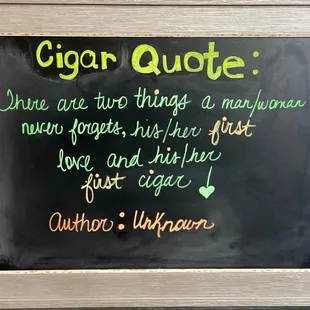 Cigar Quote:
There are two things a man/woman
never forgets, his/her first
love and his/her
first cigar
Author: Unknown